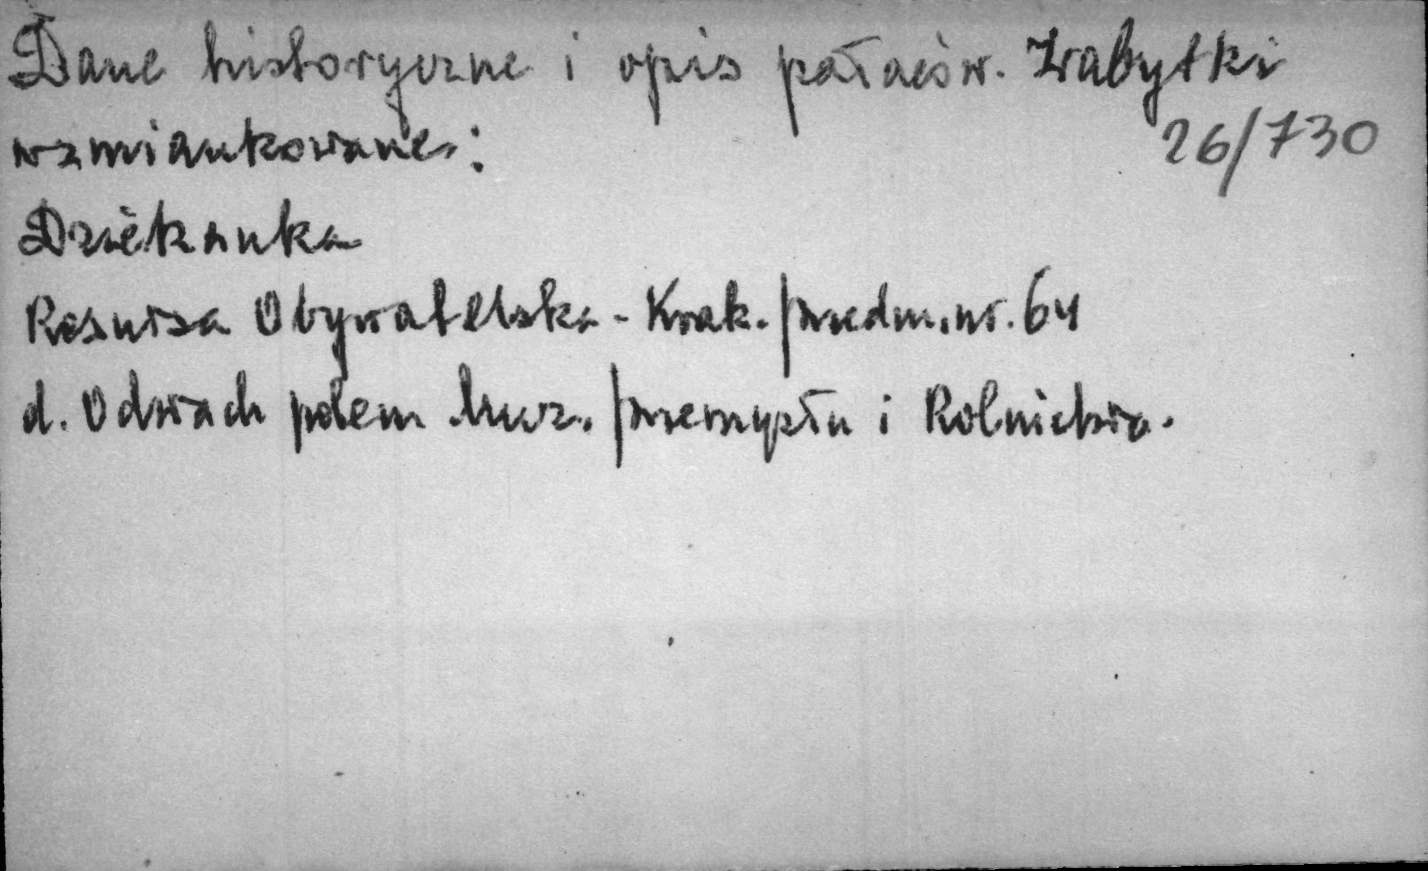 Dane historyczne i opis pałaców. Zabytki
wzmiankowane:
26/730
Dziekanka
Resursa Obywatelska - Krak. przedm. nr. 64
d. Odwach potem Muz. przemysłu i Rolnictwa.